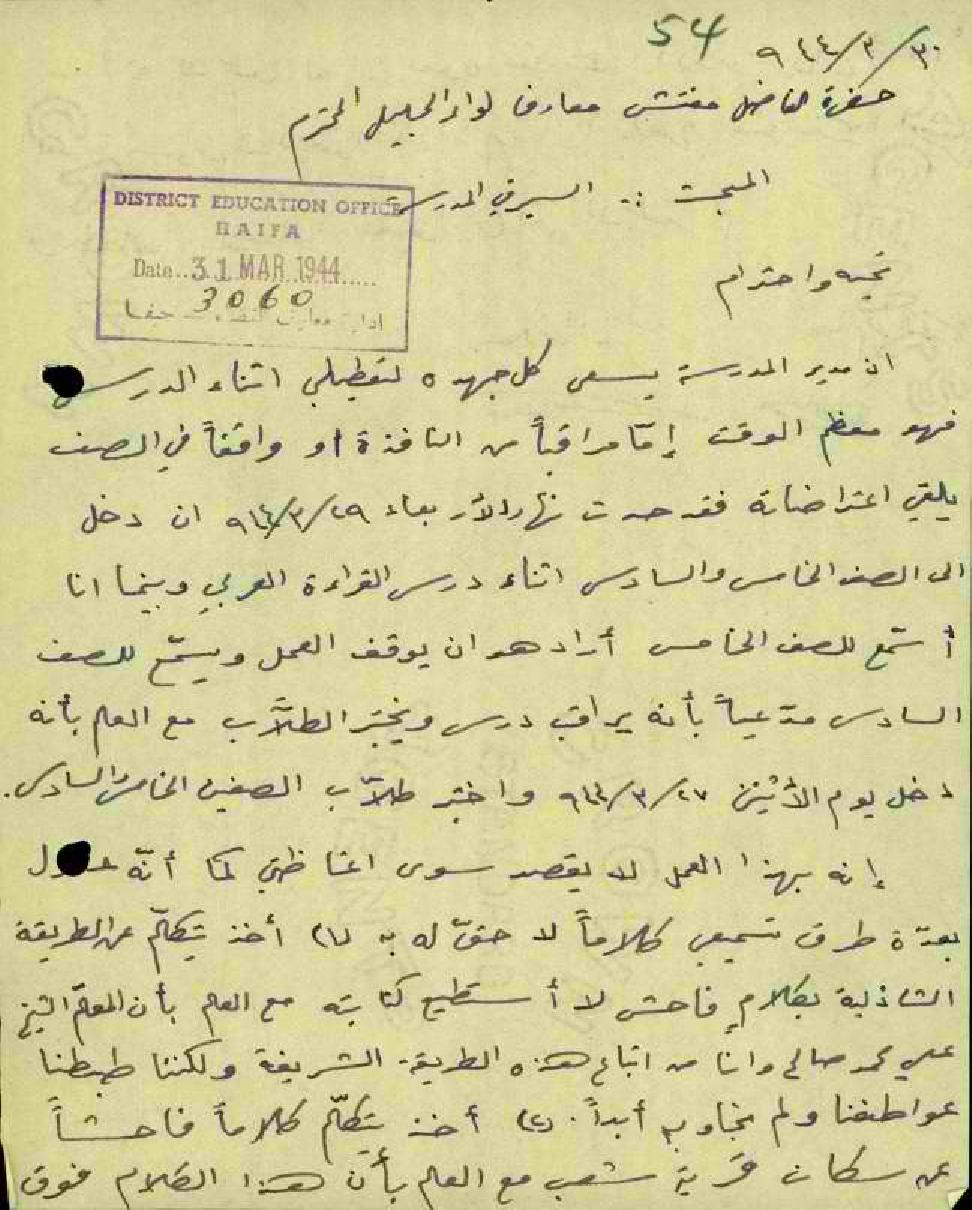 54
٣٠/٣/٩٤٤
حضرة الفاضل مفتش معارف لواء الجليل المحترم
المبحث :: السير في المدرسة
DISTRICT EDUCATION OFFICE
HAIFA
Date..31 MAR 1944......
3060
ادارة معارف حيفا
تحية واحترام
ان مدير المدرسة يسعى كل جهده لتعطيلي اثناء الدرس
فهو معظم الوقت إمّا مراقباً من النافذة او واقفاً في الصف
يلقي اعتراضاته فقد حدث نهار الأربعاء ٢٩/٣/٩٤٤ ان دخل
الى الصف الخامس والسادس اثناء درس القراءة العربي وبينما انا
أستمع للصف الخامس أراد هو ان يوقف العمل ويستمع للصف
السادس مدعياً بأنه يراقب درس ويختبر الطلّاب مع العلم بأنه
دخل يوم الأثنين ٢٧/٣/٩٤٤ واختبر طلّاب الصفين الخامس والسادس.
إنه بهذا العمل لا يقصد سوى اغاظتي كما أنّه حاول
بعدّة طرق تسميعي كلاماً لا حقّ له به (١) أخذ يتكلّم عن الطريقة
الشاذلية بكلامٍ فاحش لا أستطيع كتابته مع العلم بأن المعلم الشيخ
علي محمد صالح وانا من اتباع هذه الطريقة الشريفة ولكننا ضبطنا
عواطفنا ولم نجاوبه أبداً. (٢) أخذ يتكلّم كلاماً فاحشاً
عن سكان قرية شعب مع العلم بأن هذا الكلام فوق